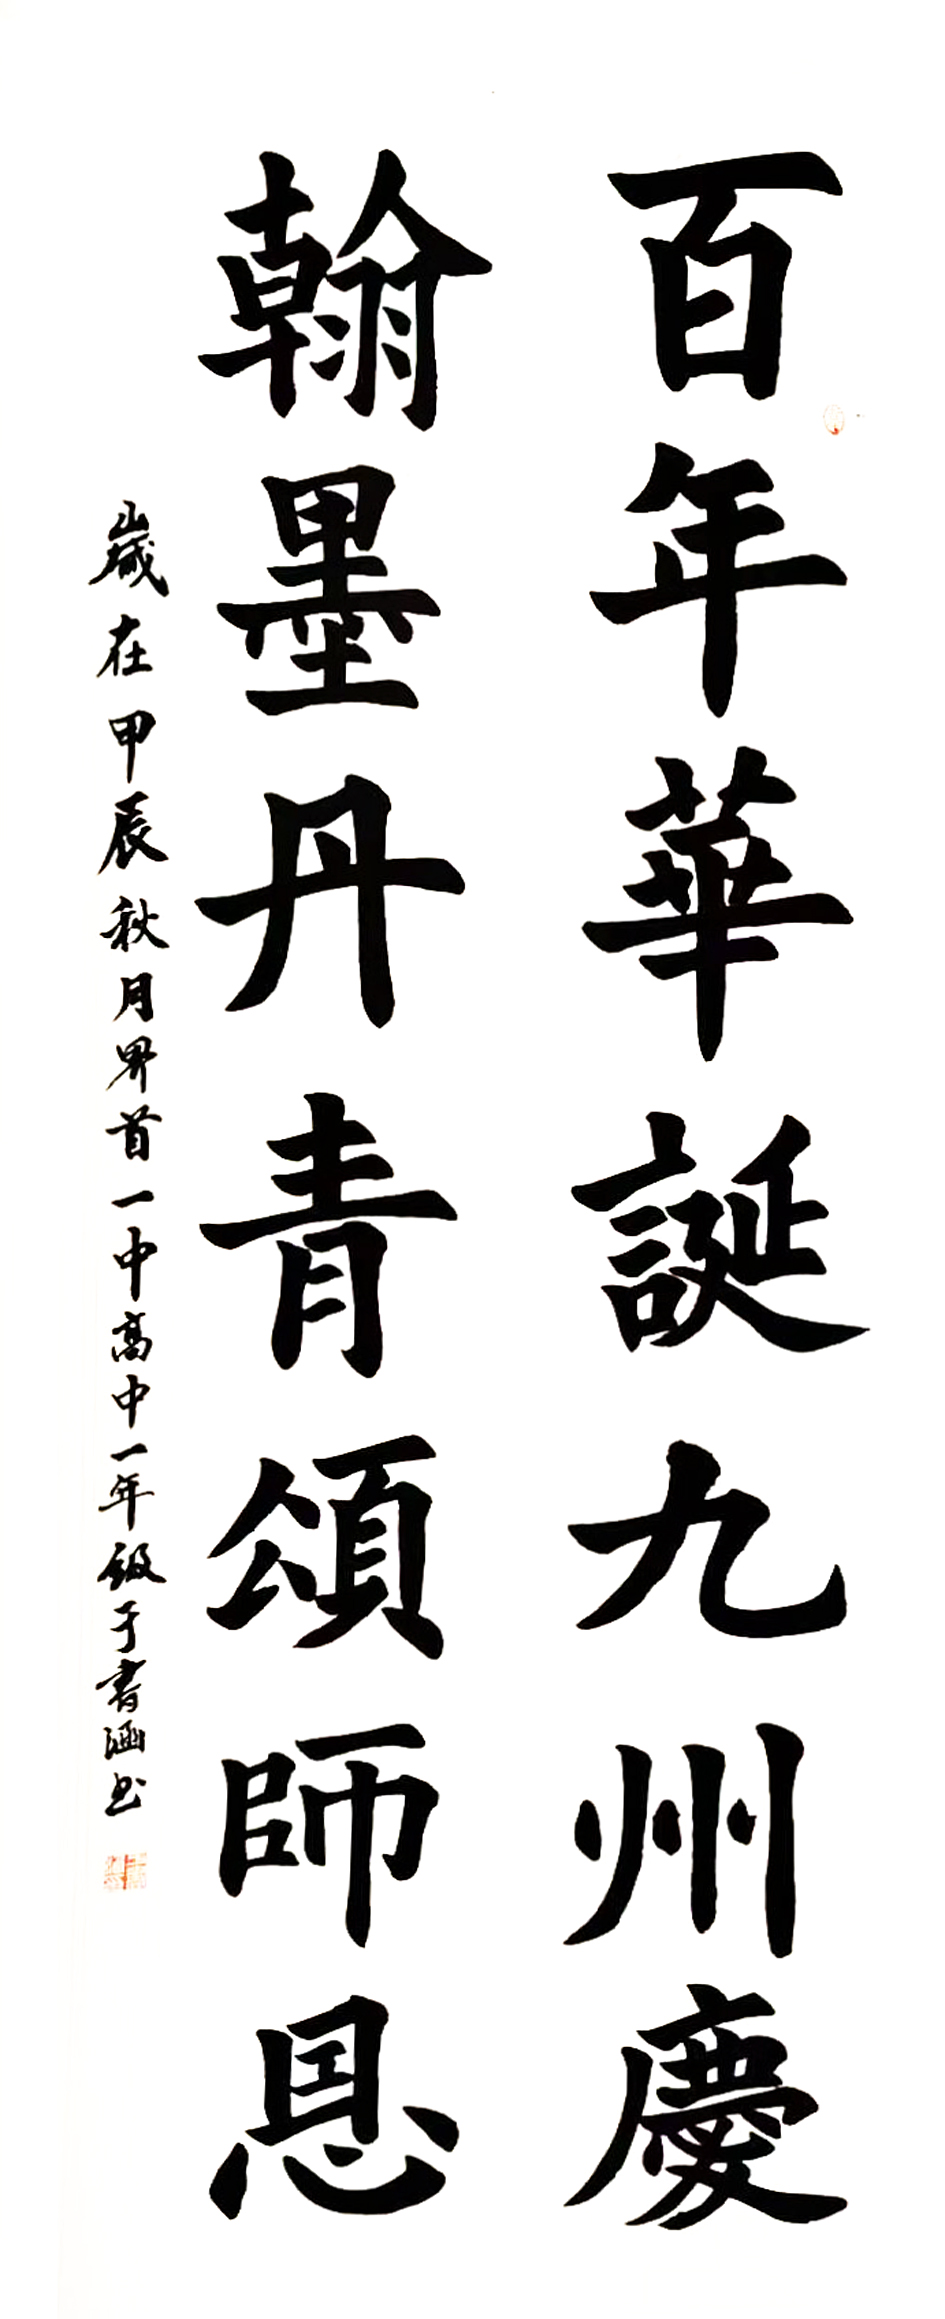 百年華誕九州慶
翰墨丹青頌師恩
歲在甲辰秋月界首一中高中一年級于書涵书